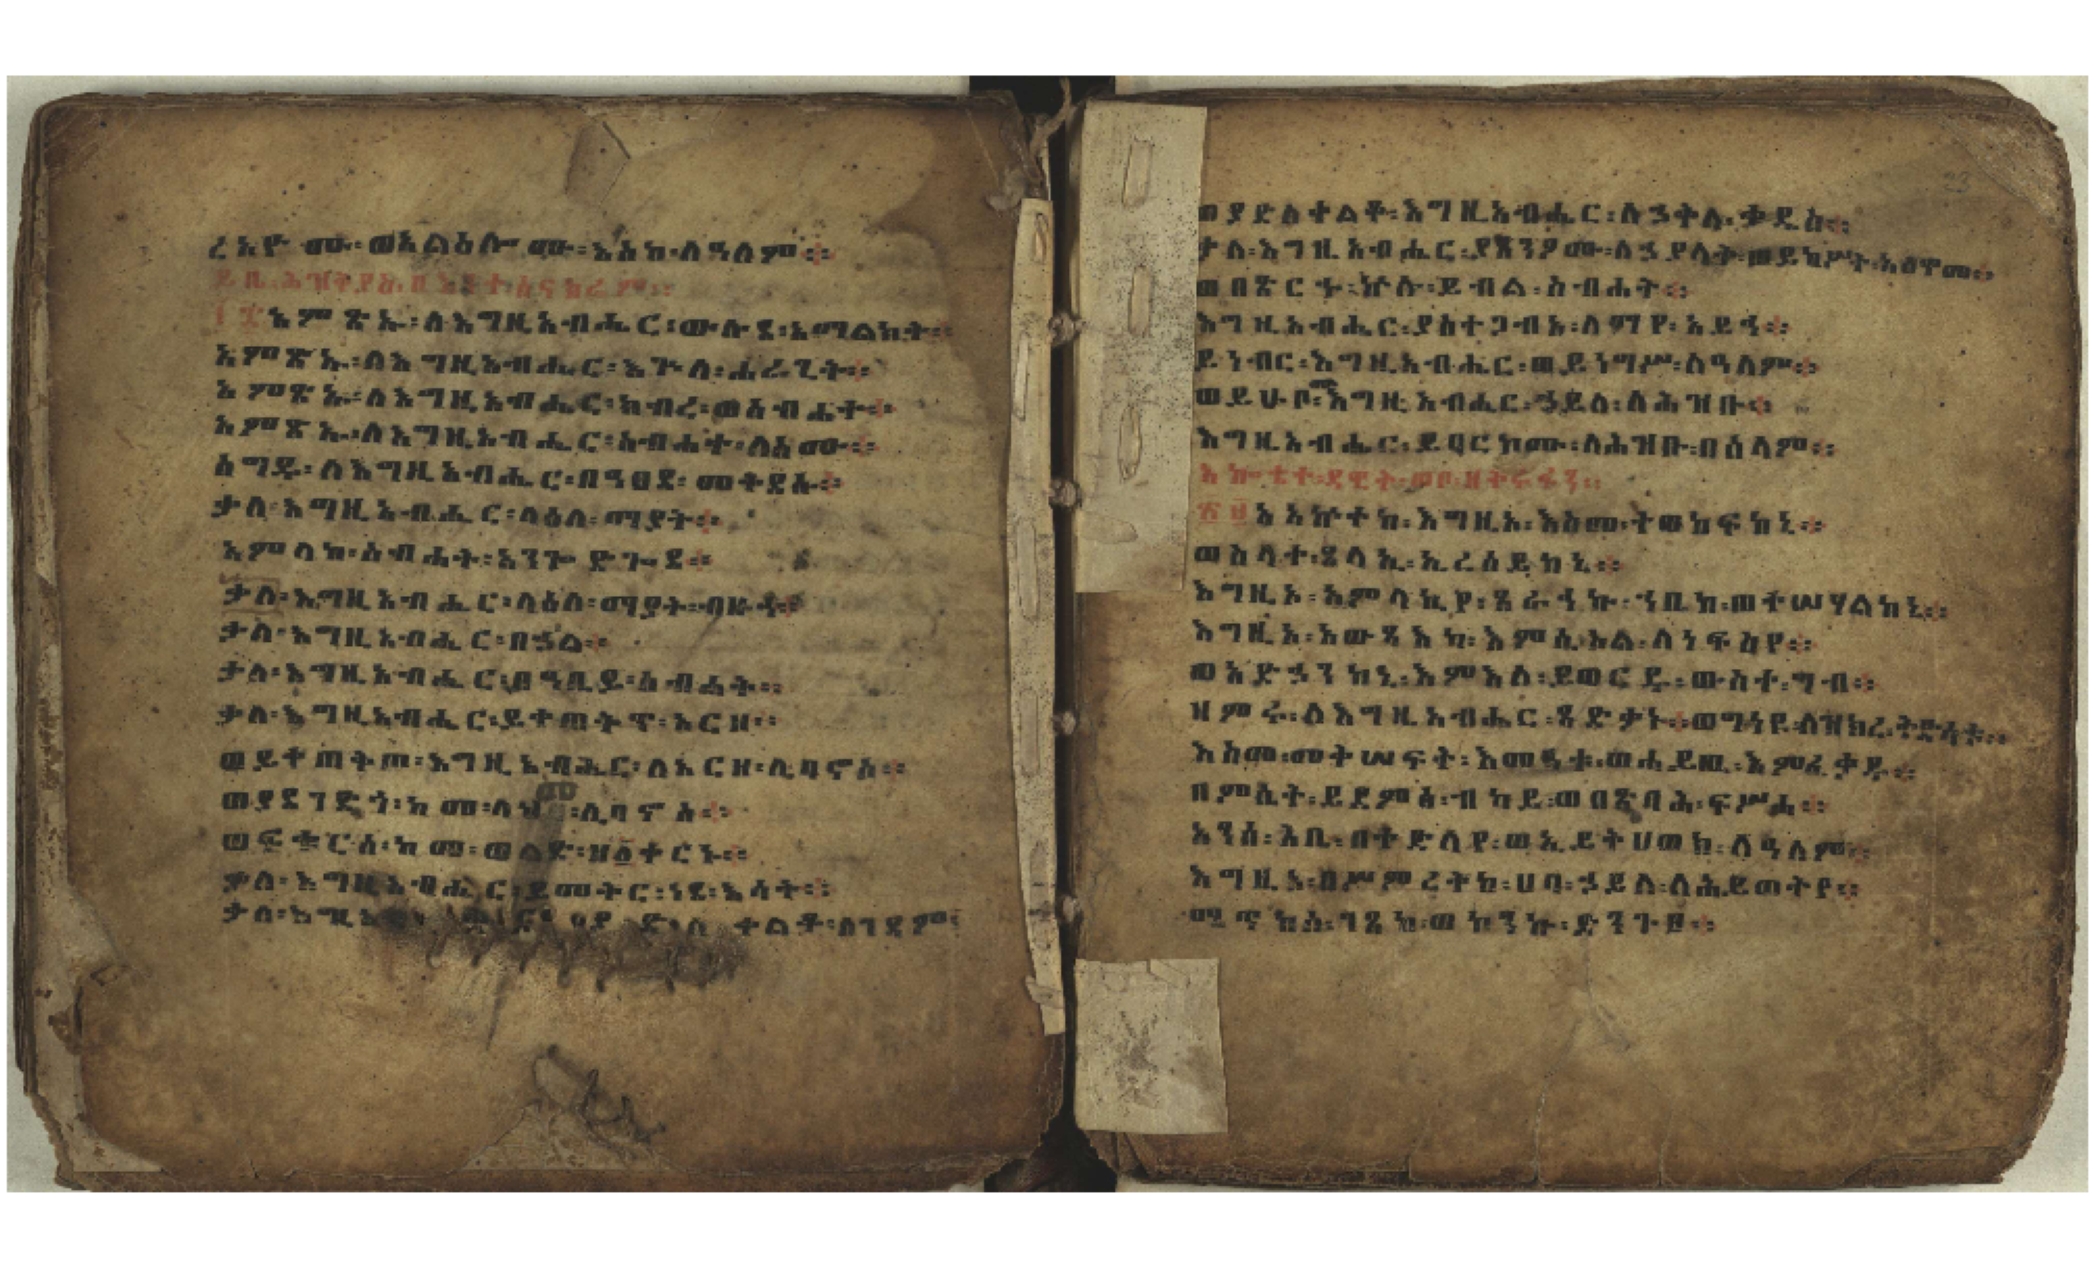 ረአዮሙ፡ወአልዕሎሙ፡እስከ፡ለዓለም።
አምጽኡ፡ለእግዚአብሔር፡ውሉደ፡አማልክት።
አምጽኡ፡ለእግዚአብሔር፡እጕለ፡ሐራጊት።
አምጽኡ፡ለእግዚአብሔር፡ክብረ፡ወስብሐተ።
አምጽኡ፡ለእግዚአብሔር፡ስብሐተ፡ለስሙ።
ስግዱ፡ለእግዚአብሔር፡በዓፀደ፡መቅደሱ።
ቃለ፡እግዚአብሔር፡ላዕለ፡ማያት።
አምላከ፡ስብሐት፡አንጐድጐደ።
ቃለ፡እግዚአብሔር፡ላዕለ፡ማያት፡ብዙኅ።
ቃለ፡እግዚአብሔር፡በኃይል።
ቃለ፡እግዚአብሔር፡በዓቢይ፡ስብሐት።
ቃለ፡እግዚአብሔር፡ይቀጠቅጥ፡አርዘ።
ወይቀጠቅጦ፡እግዚአብሔር፡ለአርዘ፡ሊባኖስ።
ወያደገድጎ፡ከመ፡ላህም፡ሊባኖስ።
ወፍቁርሰ፡ከመ፡ወልድ፡ዘ፩ቀርኑ።
ቃለ፡እግዚአብሔር፡ይመትር፡ነደ፡እሳት።
ወያድለቀልቆ፡እግዚአብሔር፡ለኃቅለ፡ቃዴስ።
ቃለ፡እግዚአብሔር፡ያጸንዖሙ፡ለኃያላት፡ወይከሥት፡አዕዋመ።
ወበጽርሑ፡ኵሉ፡ይብል፡ስብሐት።
እግዚአብሔር፡ያስተጋብእ፡ለማየ፡አይኅ።
ይነብር፡እግዚአብሔር፡ወይነግሥ፡ለዓለም።
ወይሁቦሙ፡እግዚአብሔር፡ኃይለ፡ለሕዝቡ።
እግዚአብሔር፡ይባርኮሙ፡ለሕዝቡ፡በሰላም።
አአኵተከ፡እግዚኦ፡እስመ፡ተወከፍከኒ።
ወስላተ፡ጸላኢ፡ኢረሰይከኒ።
እግዚኦ፡አምላኪየ፡ጸራኅኩ፡ኀቤከ፡ወተሠሃልከኒ።
እግዚኦ፡አውጻእካ፡እምሲኦል፡ለነፍስየ።
ወአድኃንከኒ፡እምእለ፡ይወርዱ፡ውስተ፡ግብ።
ዘምሩ፡ለእግዚአብሔር፡ጻድቃኑ፡ወግነዩ፡ለዝክረ፡ቅድሳቱ።
እስመ፡መቅሠፍት፡እመዓቱ፡ወሐይወ፡እምፈቃዱ።
በምሴት፡ይደምፅ፡ብካይ፡ወበጽባሕ፡ፍሥሐ።
አንሰ፡እቤ፡በትድላየ፡ወኢይትሀወክ፡ለዓለም።
እግዚኦ፡በሥምረትከ፡ሀባ፡ኃይለ፡ለሕይወትየ።
ሚጥከሰ፡ገጸከ፡ወኮንኩ፡ድንጉፀ።